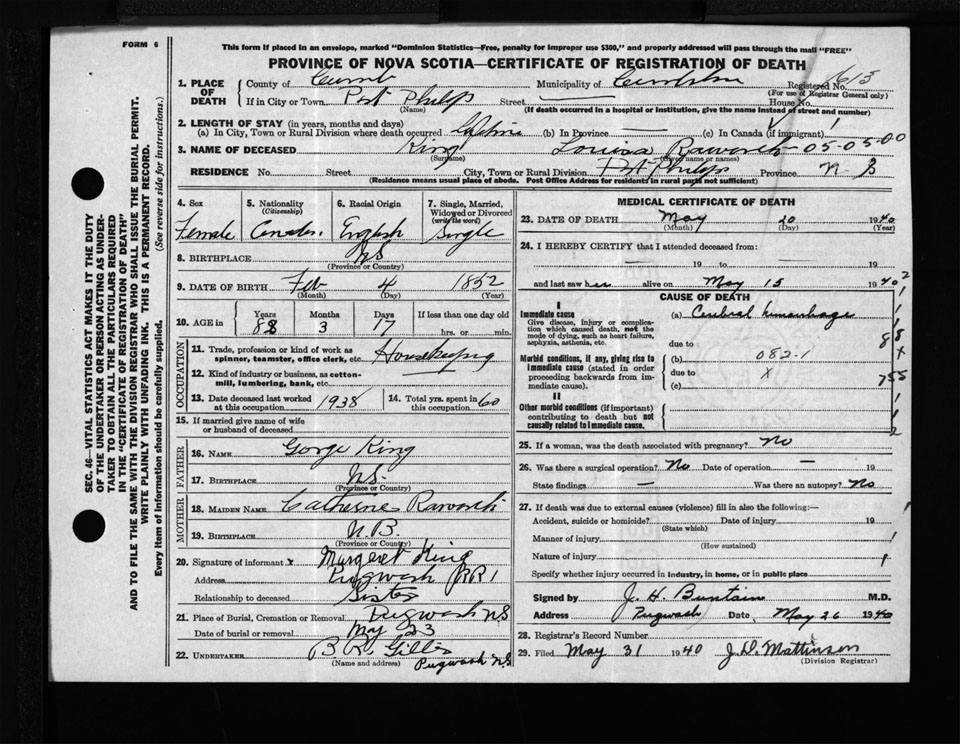 FORM 6
This form if placed in an envelope, marked "Dominion Statistics—Free, penalty for improper use $300," and properly addressed will pass through the mail "FREE"
PROVINCE OF NOVA SCOTIA—CERTIFICATE OF REGISTRATION OF DEATH
1. PLACE OF DEATH
County of Cumb Municipality of Registered No.
(For use of Registrar General only)
If in City or Town Port Philip Street House No.
(Name) (If death occurred in a hospital or institution, give the name instead of street and number)
2. LENGTH OF STAY (in years, months and days)
(a) In City, Town or Rural Division where death occurred (b) In Province — (c) In Canada (if immigrant)
3. NAME OF DECEASED King Louisa Raworth 05-05-00
(Surname) (Given name or names)
RESIDENCE No. Street City, Town or Rural Division Port Philip Province N.S
(Residence means usual place of abode. Post Office Address for residents in rural parts not sufficient)
4. Sex 5. Nationality (Citizenship) 6. Racial Origin 7. Single, Married, Widowed or Divorced (write the word)
Female Canadn. English Single
8. BIRTHPLACE NS
(Province or Country)
9. DATE OF BIRTH Feb 4 1852
(Month) (Day) (Year)
10. AGE in Years Months Days If less than one day old
88 3 17 hrs. or min.
OCCUPATION
11. Trade, profession or kind of work as spinner, teamster, office clerk, etc. Housekeeping
12. Kind of industry or business, as cotton-mill, lumbering, bank, etc.
13. Date deceased last worked at this occupation 1938 14. Total yrs. spent in this occupation 60
15. If married give name of wife or husband of deceased
FATHER
16. NAME George King
17. BIRTHPLACE NS.
(Province or Country)
MOTHER
18. MAIDEN NAME Catherine Raworth
19. BIRTHPLACE N.B.
(Province or Country)
20. Signature of informant x Margaret King
Address Pugwash RR1
Relationship to deceased Sister
21. Place of Burial, Cremation or Removal Pugwash NS
Date of burial or removal May 23
22. UNDERTAKER B R Gillis
(Name and address) Pugwash NS
MEDICAL CERTIFICATE OF DEATH
23. DATE OF DEATH May 20 1940
(Month) (Day) (Year)
24. I HEREBY CERTIFY that I attended deceased from:
— 19 to — 19
and last saw her alive on May 15 1940
CAUSE OF DEATH
I
Immediate cause
Give disease, injury or complication which caused death, not the mode of dying, such as heart failure, asphyxia, asthenia, etc.
(a) Cerebral hemorrhage
due to
Morbid conditions, if any, giving rise to immediate cause (stated in order proceeding backwards from immediate cause).
(b) 082.1
due to x
(c)
II
Other morbid conditions (if important) contributing to death but not causally related to immediate cause.
25. If a woman, was the death associated with pregnancy? No
26. Was there a surgical operation? No Date of operation — 19
State findings — Was there an autopsy? No
27. If death was due to external causes (violence) fill in also the following:—
Accident, suicide or homicide? Date of injury 19
(State which)
Manner of injury
(How sustained)
Nature of injury
Specify whether injury occurred in industry, in home, or in public place
Signed by J. H. Buntain M.D.
Address Pugwash Date May 26 1940
28. Registrar's Record Number
29. Filed May 31 1940 J.D. Mattinson
(Division Registrar)
SEC. 46—VITAL STATISTICS ACT MAKES IT THE DUTY
OF THE UNDERTAKER OR PERSON ACTING AS UNDERTAKER TO OBTAIN ALL THE PARTICULARS REQUIRED
IN THE "CERTIFICATE OF REGISTRATION OF DEATH"
AND TO FILE THE SAME WITH THE DIVISION REGISTRAR WHO SHALL ISSUE THE BURIAL PERMIT.
WRITE PLAINLY WITH UNFADING INK. THIS IS A PERMANENT RECORD.
Every item of information should be carefully supplied. (See reverse side for instructions.)